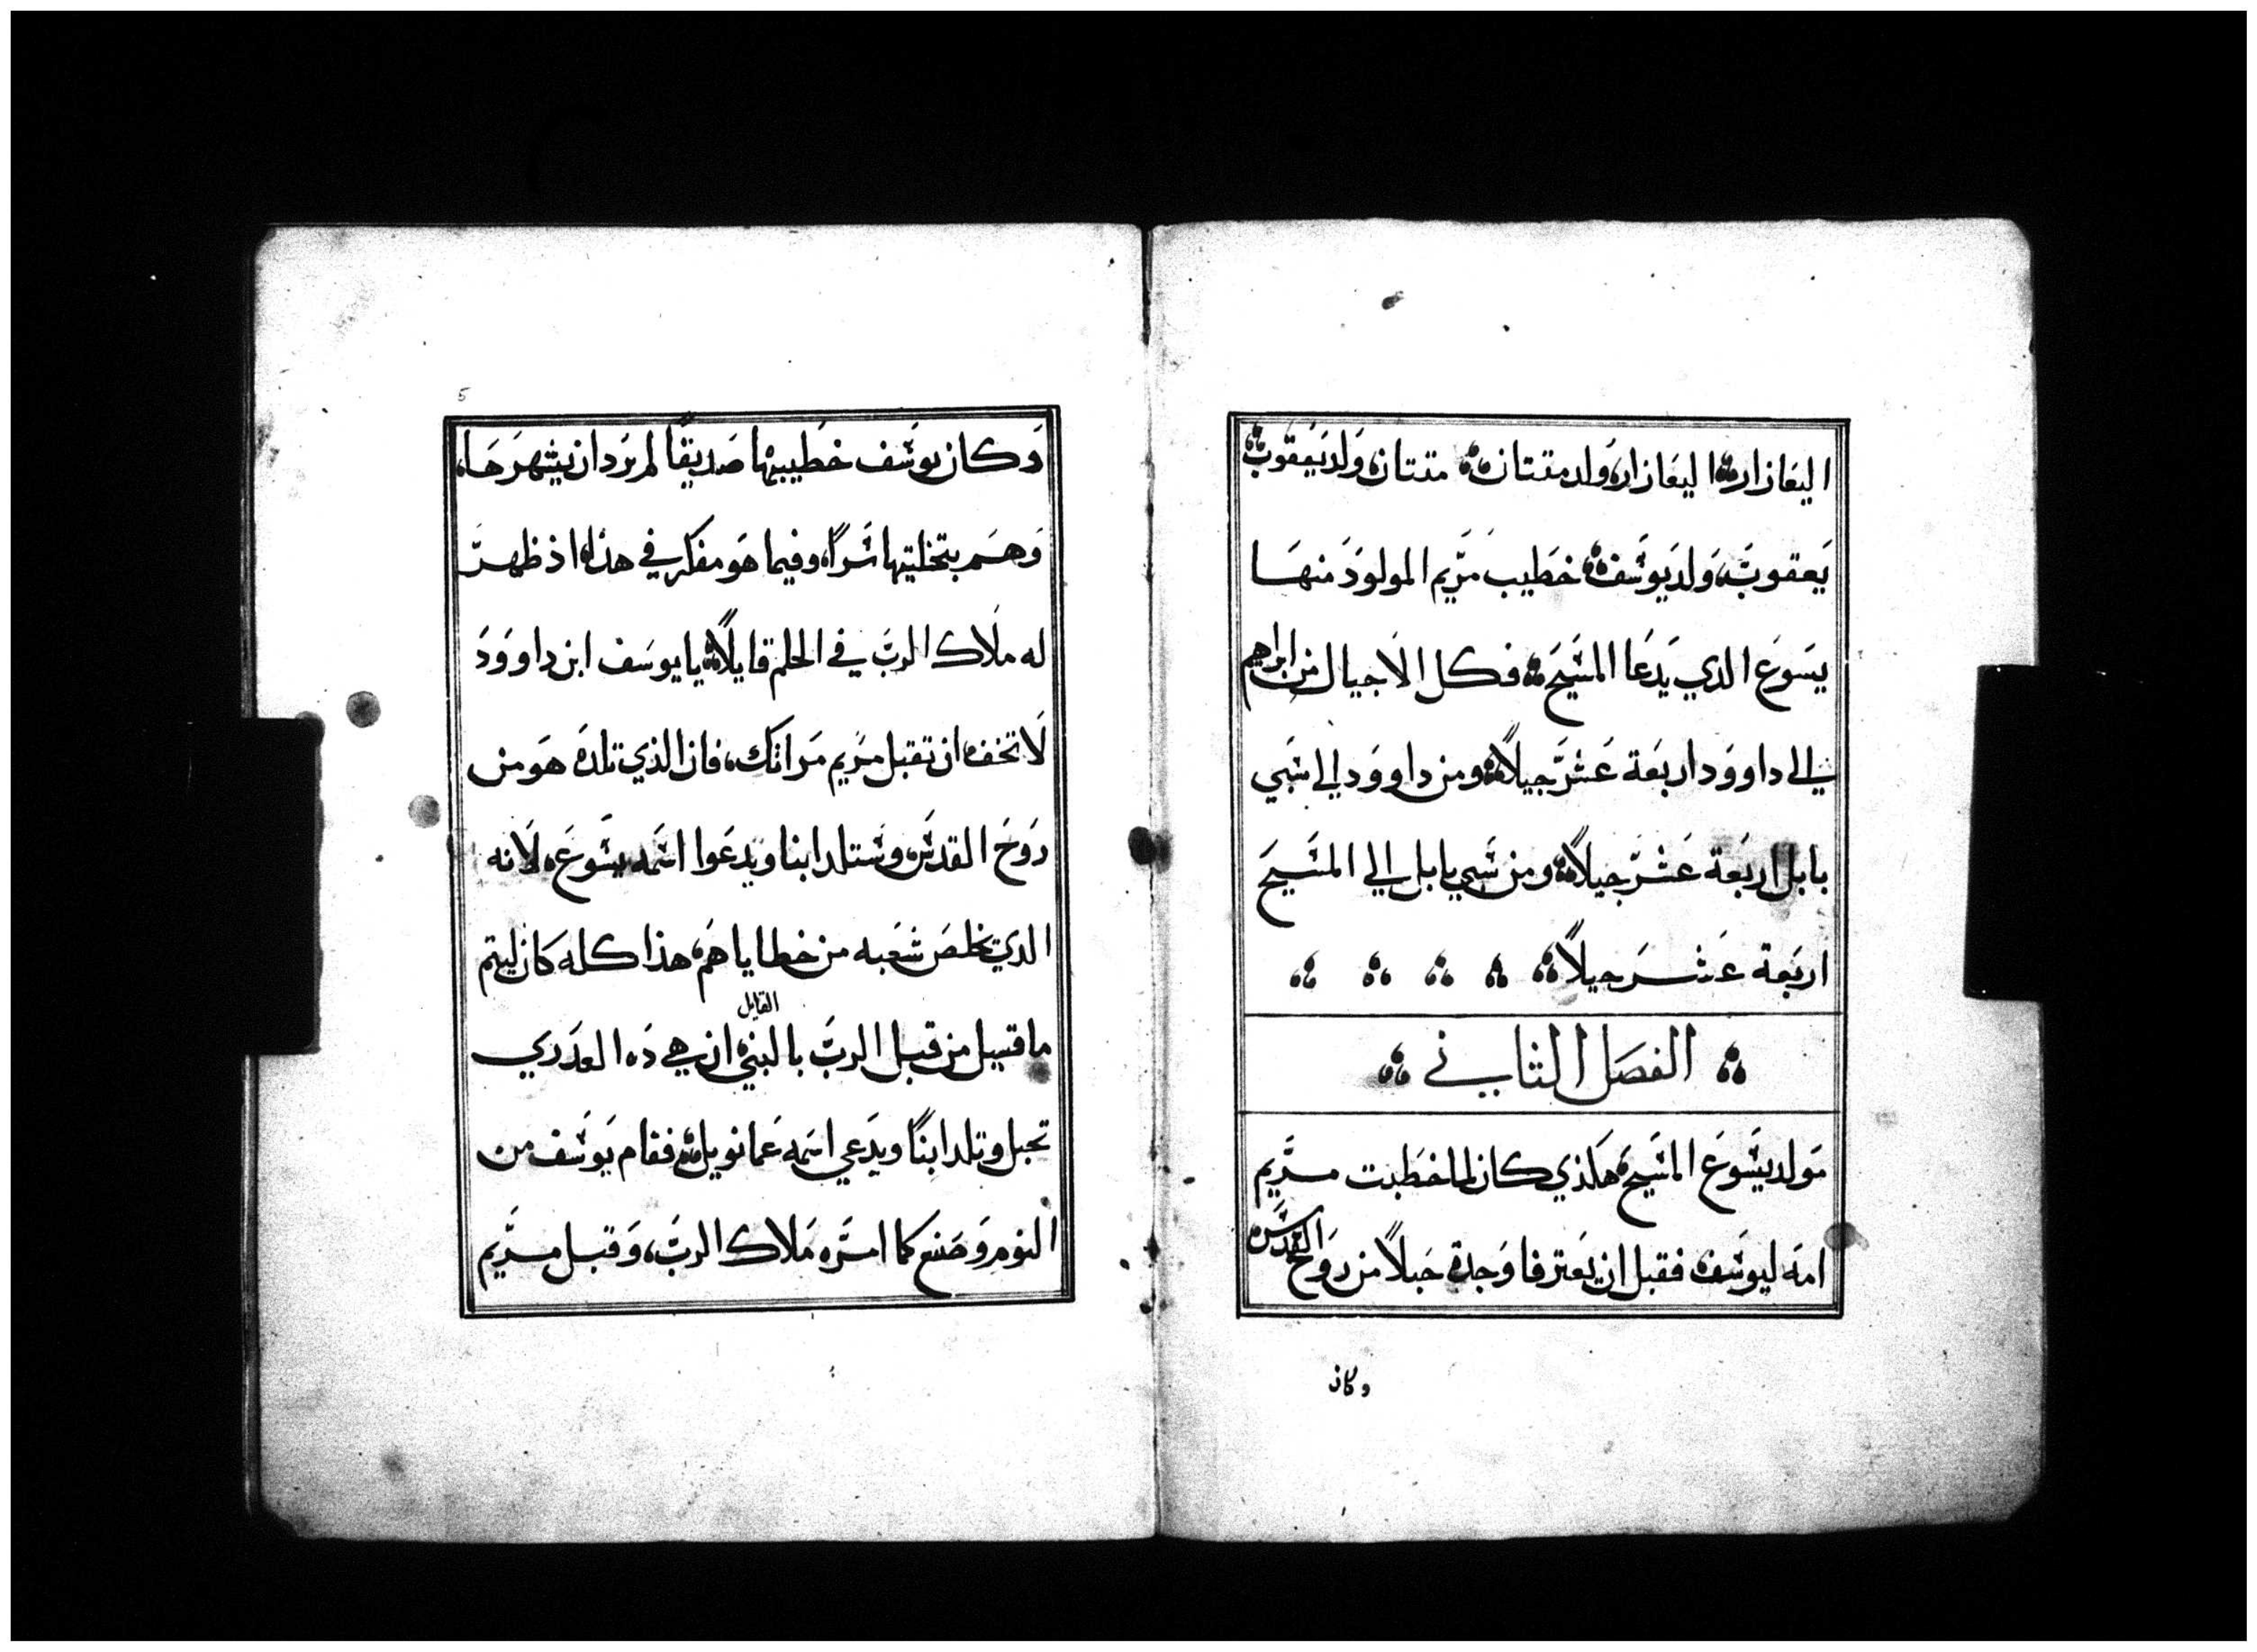 اليعازار ؞ اليعازار، ولد متتان ؞ متتان، ولد يعقوب ؞
يعقوب، ولد يوسف ؞ خطيب مريم المولود منها
يسوع الدي يدعا المسيح ؞ فكل الاجيال من ابراهيم
الي داوود اربعة عشر جيلاً ؞ ومن داوود الي سبي
بابل اربعة عشر جيلاً ؞ ومن سبي بابل الي المسيح
اربعة عشر جيلاً ؞ ؞ ؞ ؞ ؞
؞ الفصل الثاني ؞
مولد يسوع المسيح هكذي كان لما خطبت مريم
امه ليوسف، فقبل ان يعترفا وجدة حبلاً من روح القدس
وكان
5
وكان يوسف خطيبها صديقاً لم يرد ان ينهرها،
وهم بتخليتها سراً، وفيما هو مفكر في هذا، اذ ظهر
له ملاك الرب في الحلم قايلاً ؞ يا يوسف ابن داوود
لا تخف، ان تقبل مريم مراتك، فان الذي تلده هو من
روح القدس، وستلد ابنا ويدعوا اسمه يسوع، لانه
الدي يخلص شعبه من خطاياهم، هذا كله كان ليتم
ما قيل من قبل الرب بالنبي القايل ان هي ذه العذري
تحبل وتلد ابنًا ويدعي اسمه عمانويل ؞ فقام يوسف من
النوم وصنع كما امره ملاك الرب، وقبل مريم